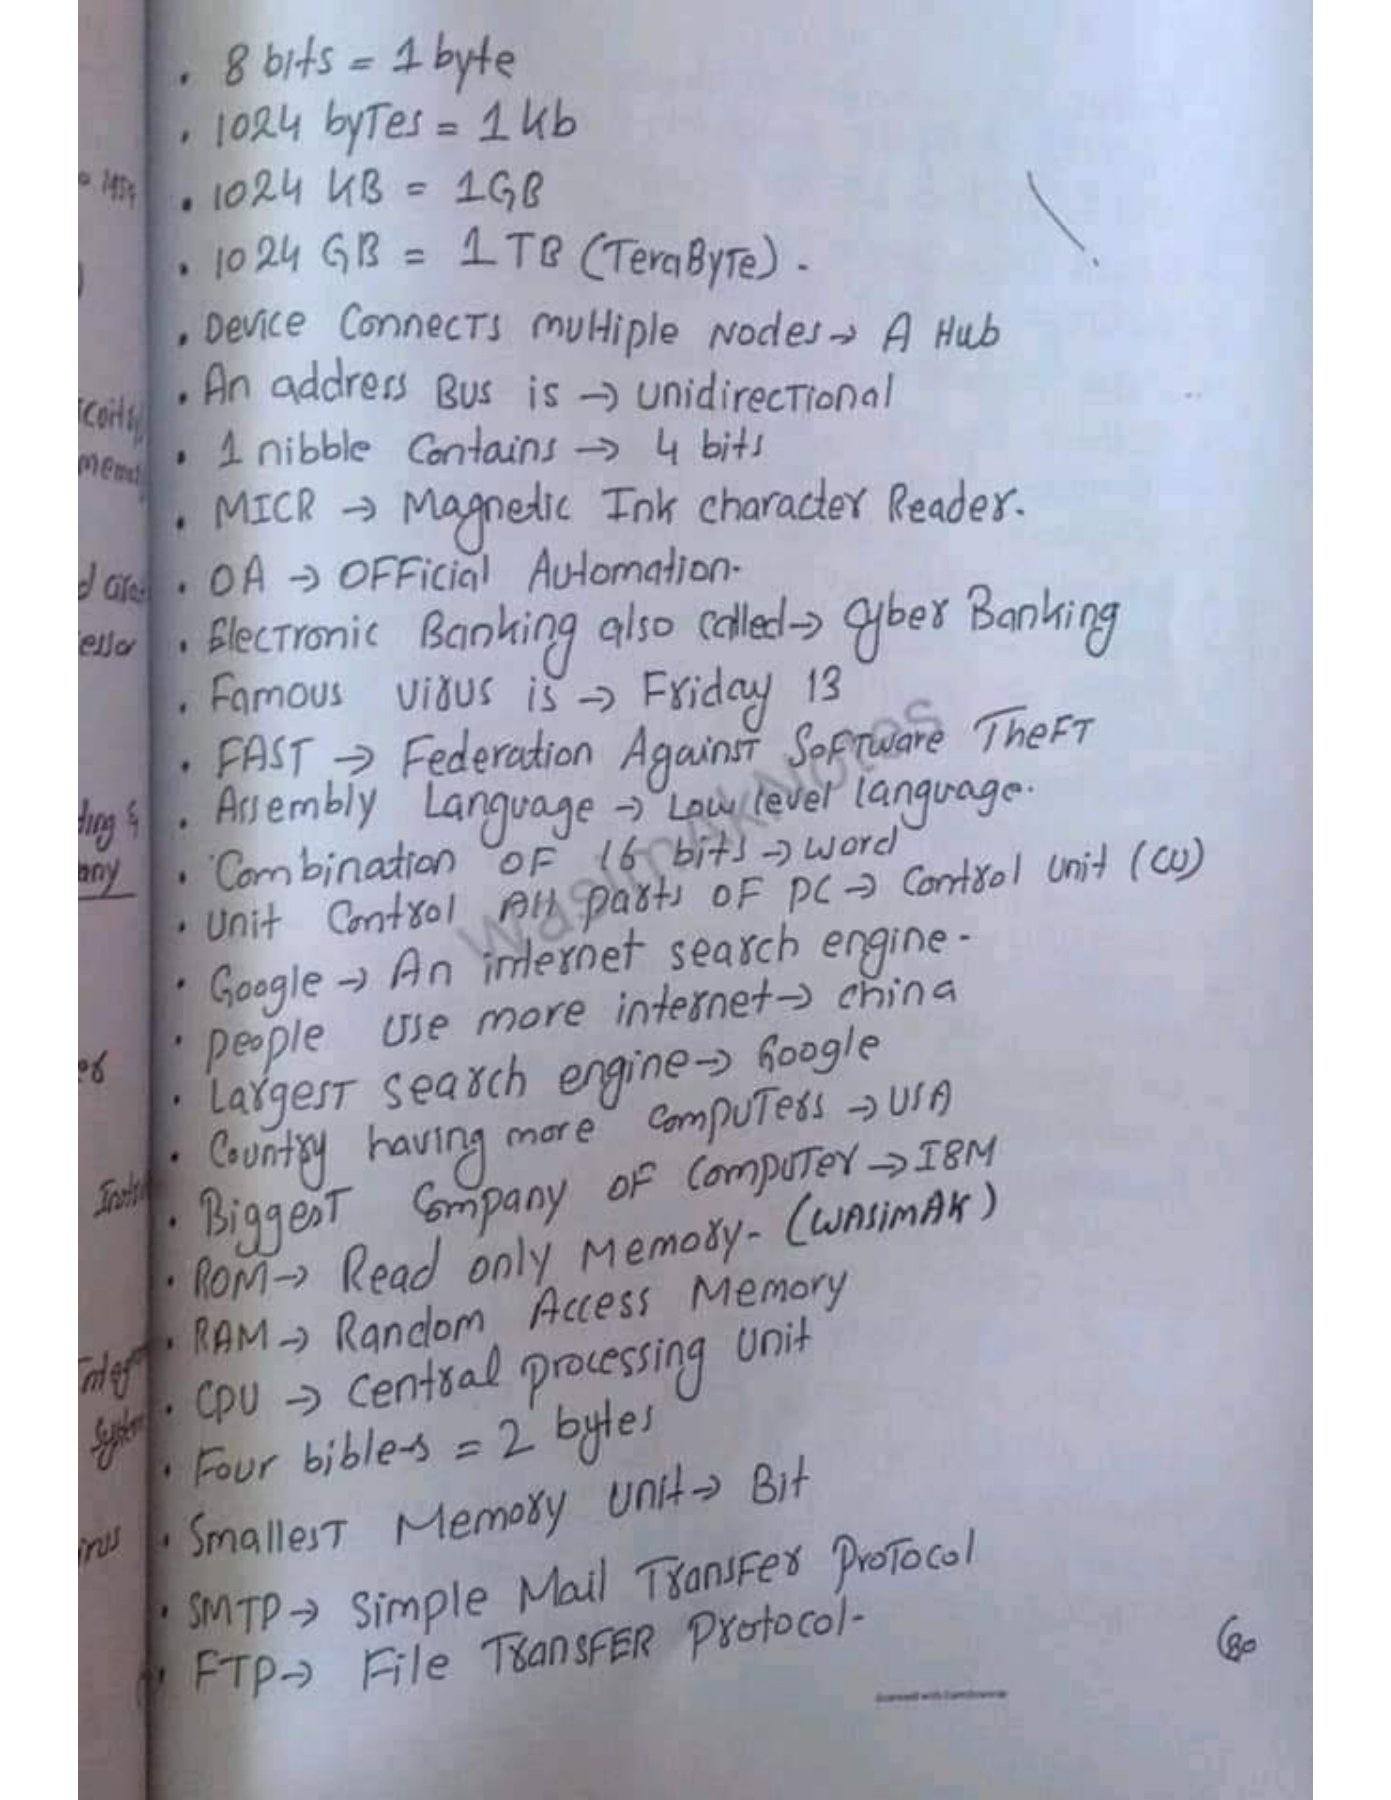 • 8 bits = 1 byte
• 1024 byTes = 1 Kb
• 1024 KB = 1GB
• 1024 GB = 1 TB (TeraByTe).
• Device ConnecTs multiple Nodes → A Hub
• An address Bus is → unidirecTional
• 1 nibble Contains → 4 bits
• MICR → Magnetic Ink character Reader.
• OA → OFFicial Automation.
• ElecTronic Banking also called → Cyber Banking
• Famous virus is → Friday 13
• FAST → Federation AgainsT SoFTware TheFT
• Assembly Language → Low level language.
• Combination OF 16 bits → word
• Unit Control All parts OF PC → Control Unit (CU)
• Google → An internet search engine.
• people use more internet → china
• LargesT search engine → Google
• Country having more compuTers → USA
• BiggesT Company OF compuTer → IBM
• ROM → Read only Memory. (WASimAK)
• RAM → Random Access Memory
• CPU → Central processing Unit
• Four bibles = 2 bytes
• SmallesT Memory Unit → Bit
• SMTP → Simple Mail TransFer ProTocol
• FTP → File TRanSFER Protocol.
80
WasimAkNotes
Scanned with CamScanner